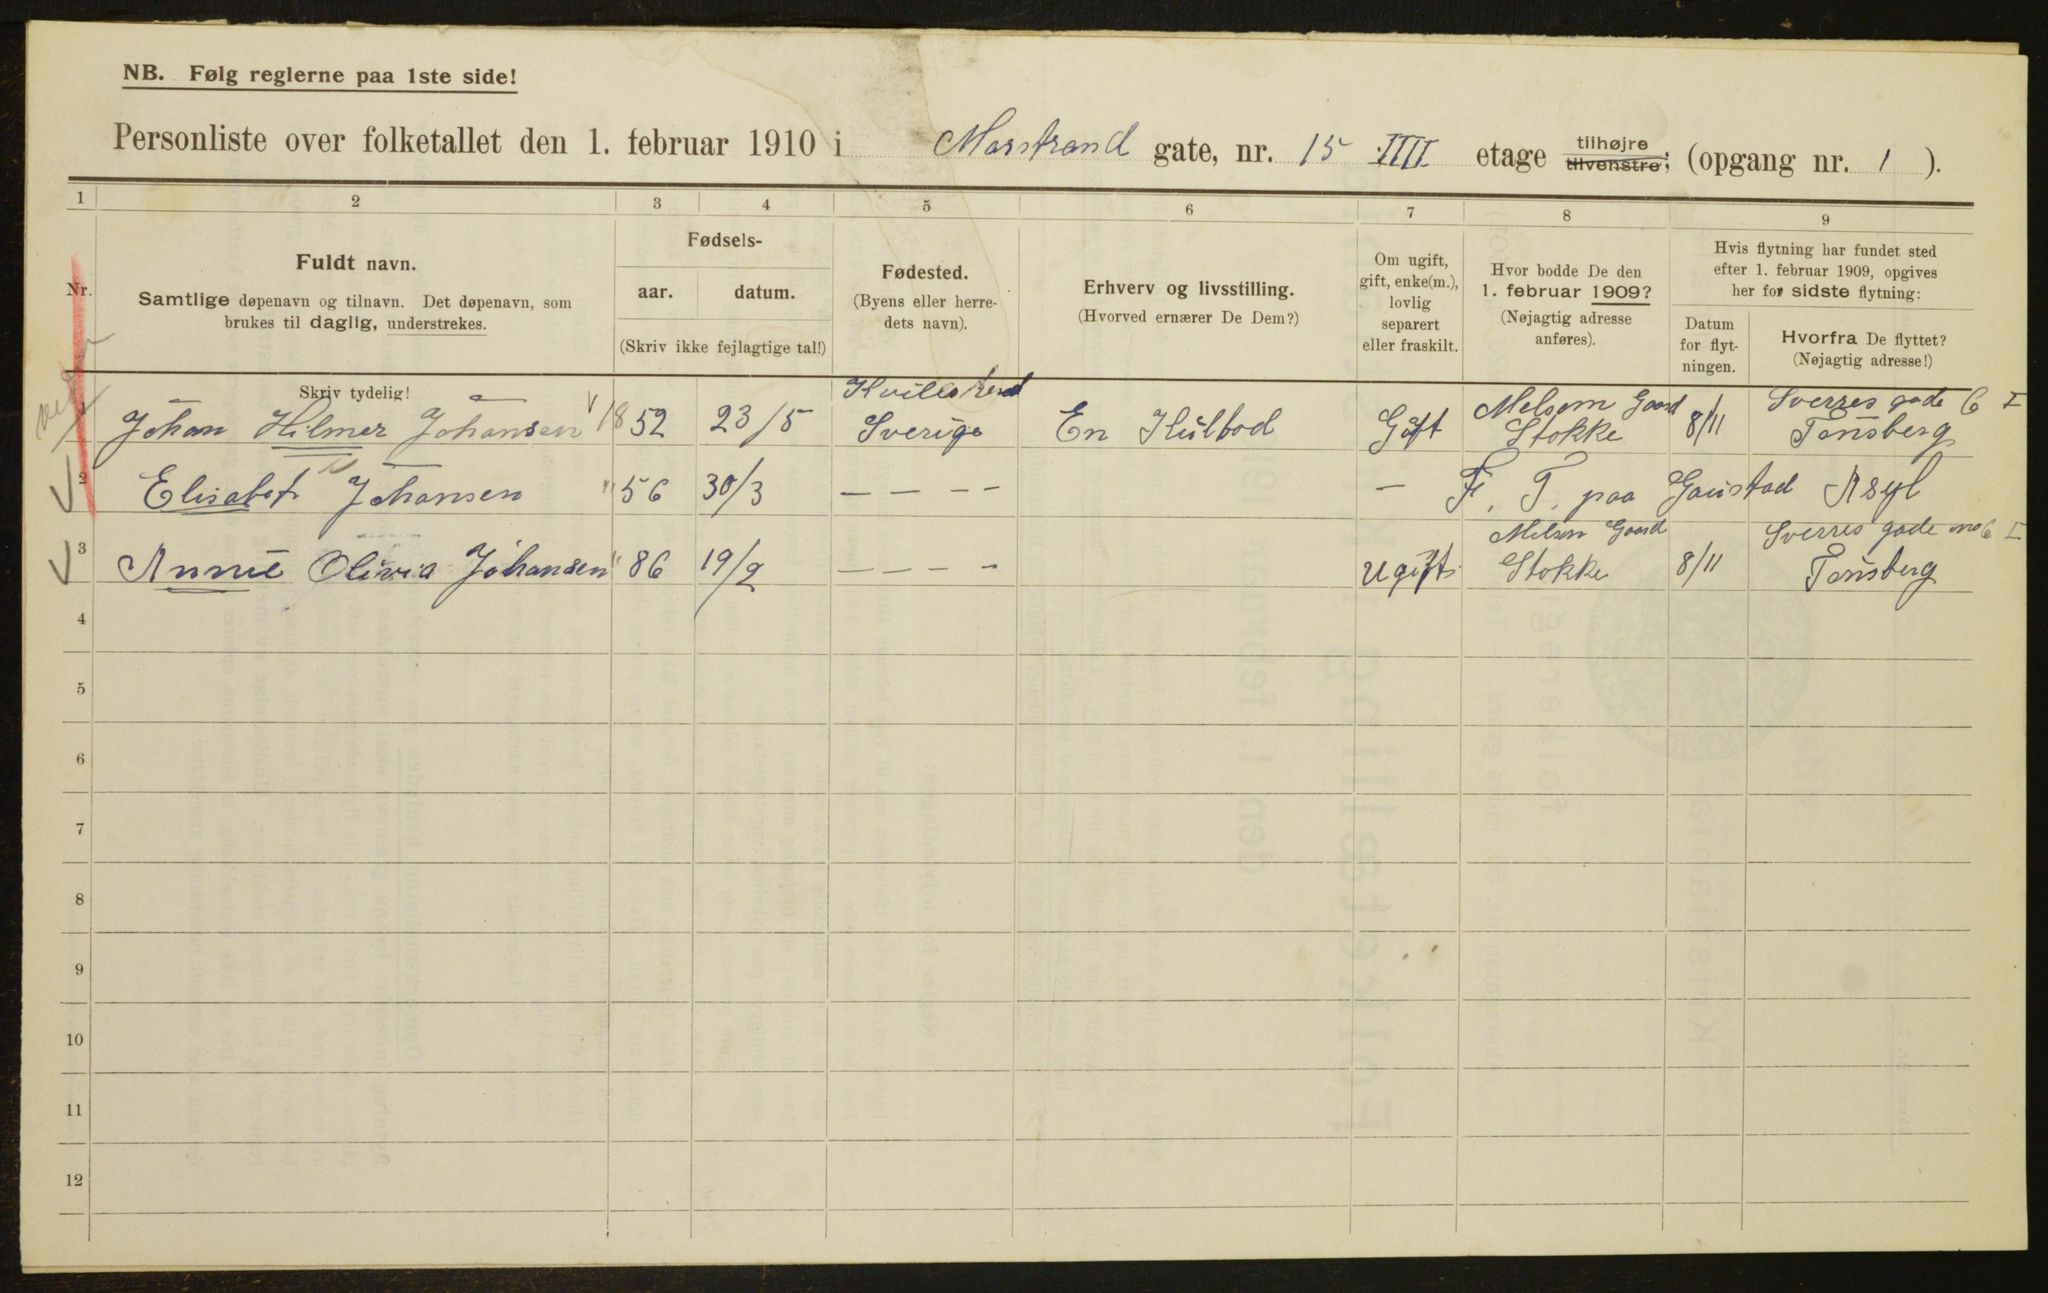 NB. Følg reglerne paa 1ste side!
Personliste over folketallet den 1. februar 1910 i Marstrand gate, nr. 15 IIII etage tilhøjre, tilvenstre; (opgang nr. 1 ).
1 2 3 4 5 6 7 8 9
Nr.
Fuldt navn.
Samtlige døpenavn og tilnavn. Det døpenavn, som
brukes til daglig, understrekes.
Skriv tydelig!
Fødsels-
aar. datum.
(Skriv ikke fejlagtige tal!)
Fødested.
(Byens eller herre-
dets navn).
Erhverv og livsstilling.
(Hvorved ernærer De Dem?)
Om ugift,
gift, enke(m.),
lovlig
separert
eller fraskilt.
Hvor bodde De den
1. februar 1909?
(Nøjagtig adresse
anføres).
Hvis flytning har fundet sted
efter 1. februar 1909, opgives
her for sidste flytning:
Datum
for flyt-
ningen.
Hvorfra De flyttet?
(Nøjagtig adresse!)
Melsom Gaard Sverres gade 6 I
1 Johan Hilmer Johansen 1852 23/5 Sverige Gift Stokke 8/11 Tønsberg
2 Elisabet Johansen " 56 30/3 — — — — — F. T. paa Gaustad Asyl
Melsen Gaard Sverres gade no 6 I
3 Annie Olivia Johansen " 86 19/2 — — — — Ugift Stokke 8/11 Tønsberg
4
5
6
7
8
9
10
11
12